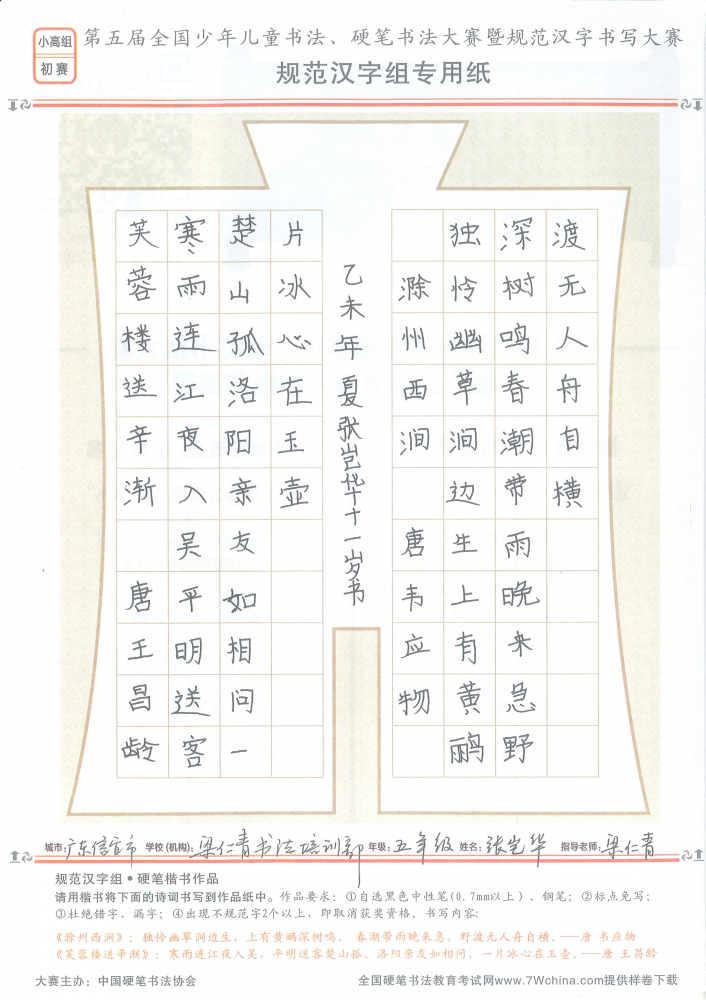 小高组
初赛
第五届全国少年儿童书法、硬笔书法大赛暨规范汉字书写大赛
规范汉字组专用纸
芙蓉楼送辛渐 唐王昌龄
寒雨连江夜入吴平明送客
楚山孤洛阳亲友如相问一
片冰心在玉壶
乙未年夏张岂华十一岁书
滁州西涧 唐韦应物
独怜幽草涧边生上有黄鹂
深树鸣春潮带雨晚来急野
渡无人舟自横
城市:广东信宜市 学校(机构):梁仁青书法培训部 年级:五年级 姓名:张岂华 指导老师:梁仁青
规范汉字组•硬笔楷书作品
请用楷书将下面的诗词书写到作品纸中。作品要求：①自选黑色中性笔(0.7mm以上)、钢笔；②标点免写；
③杜绝错字、漏字；④出现不规范字2个以上，即取消获奖资格。书写内容：
《滁州西涧》：独怜幽草涧边生，上有黄鹂深树鸣。春潮带雨晚来急，野渡无人舟自横。——唐 韦应物
《芙蓉楼送辛渐》：寒雨连江夜入吴，平明送客楚山孤。洛阳亲友如相问，一片冰心在玉壶。——唐 王昌龄
大赛主办：中国硬笔书法协会 全国硬笔书法教育考试网www.7Wchina.com提供样卷下载